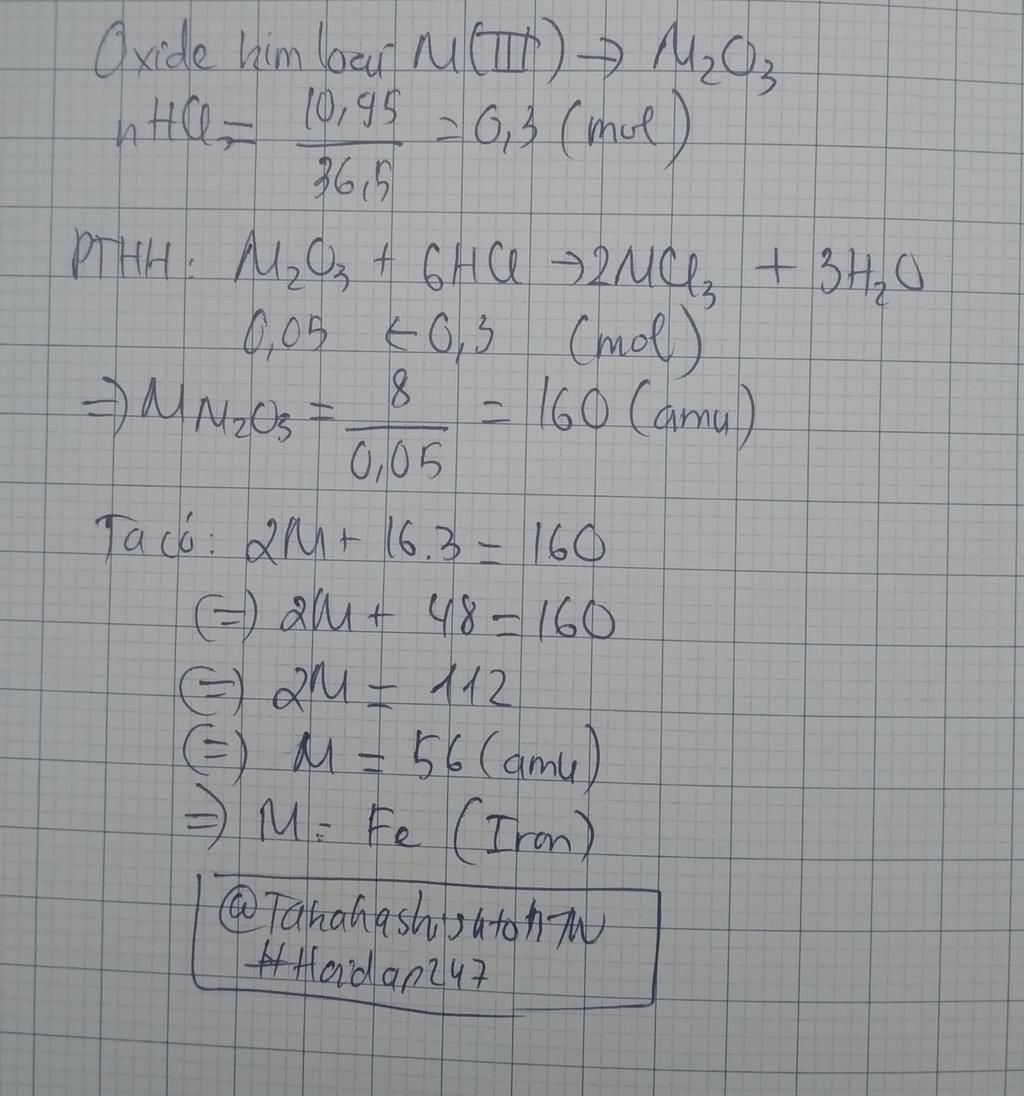 Oxide kim loại M(III) → M₂O₃
nHCl = 10,95 / 36,5 = 0,3 (mol)
PTHH: M₂O₃ + 6HCl → 2MCl₃ + 3H₂O
0,05 ← 0,3 (mol)
⇒ M M₂O₃ = 8 / 0,05 = 160 (amu)
Ta có: 2M + 16.3 = 160
(=) 2M + 48 = 160
(=) 2M = 112
(=) M = 56 (amu)
⇒ M = Fe (Iron)
#Hoidap247